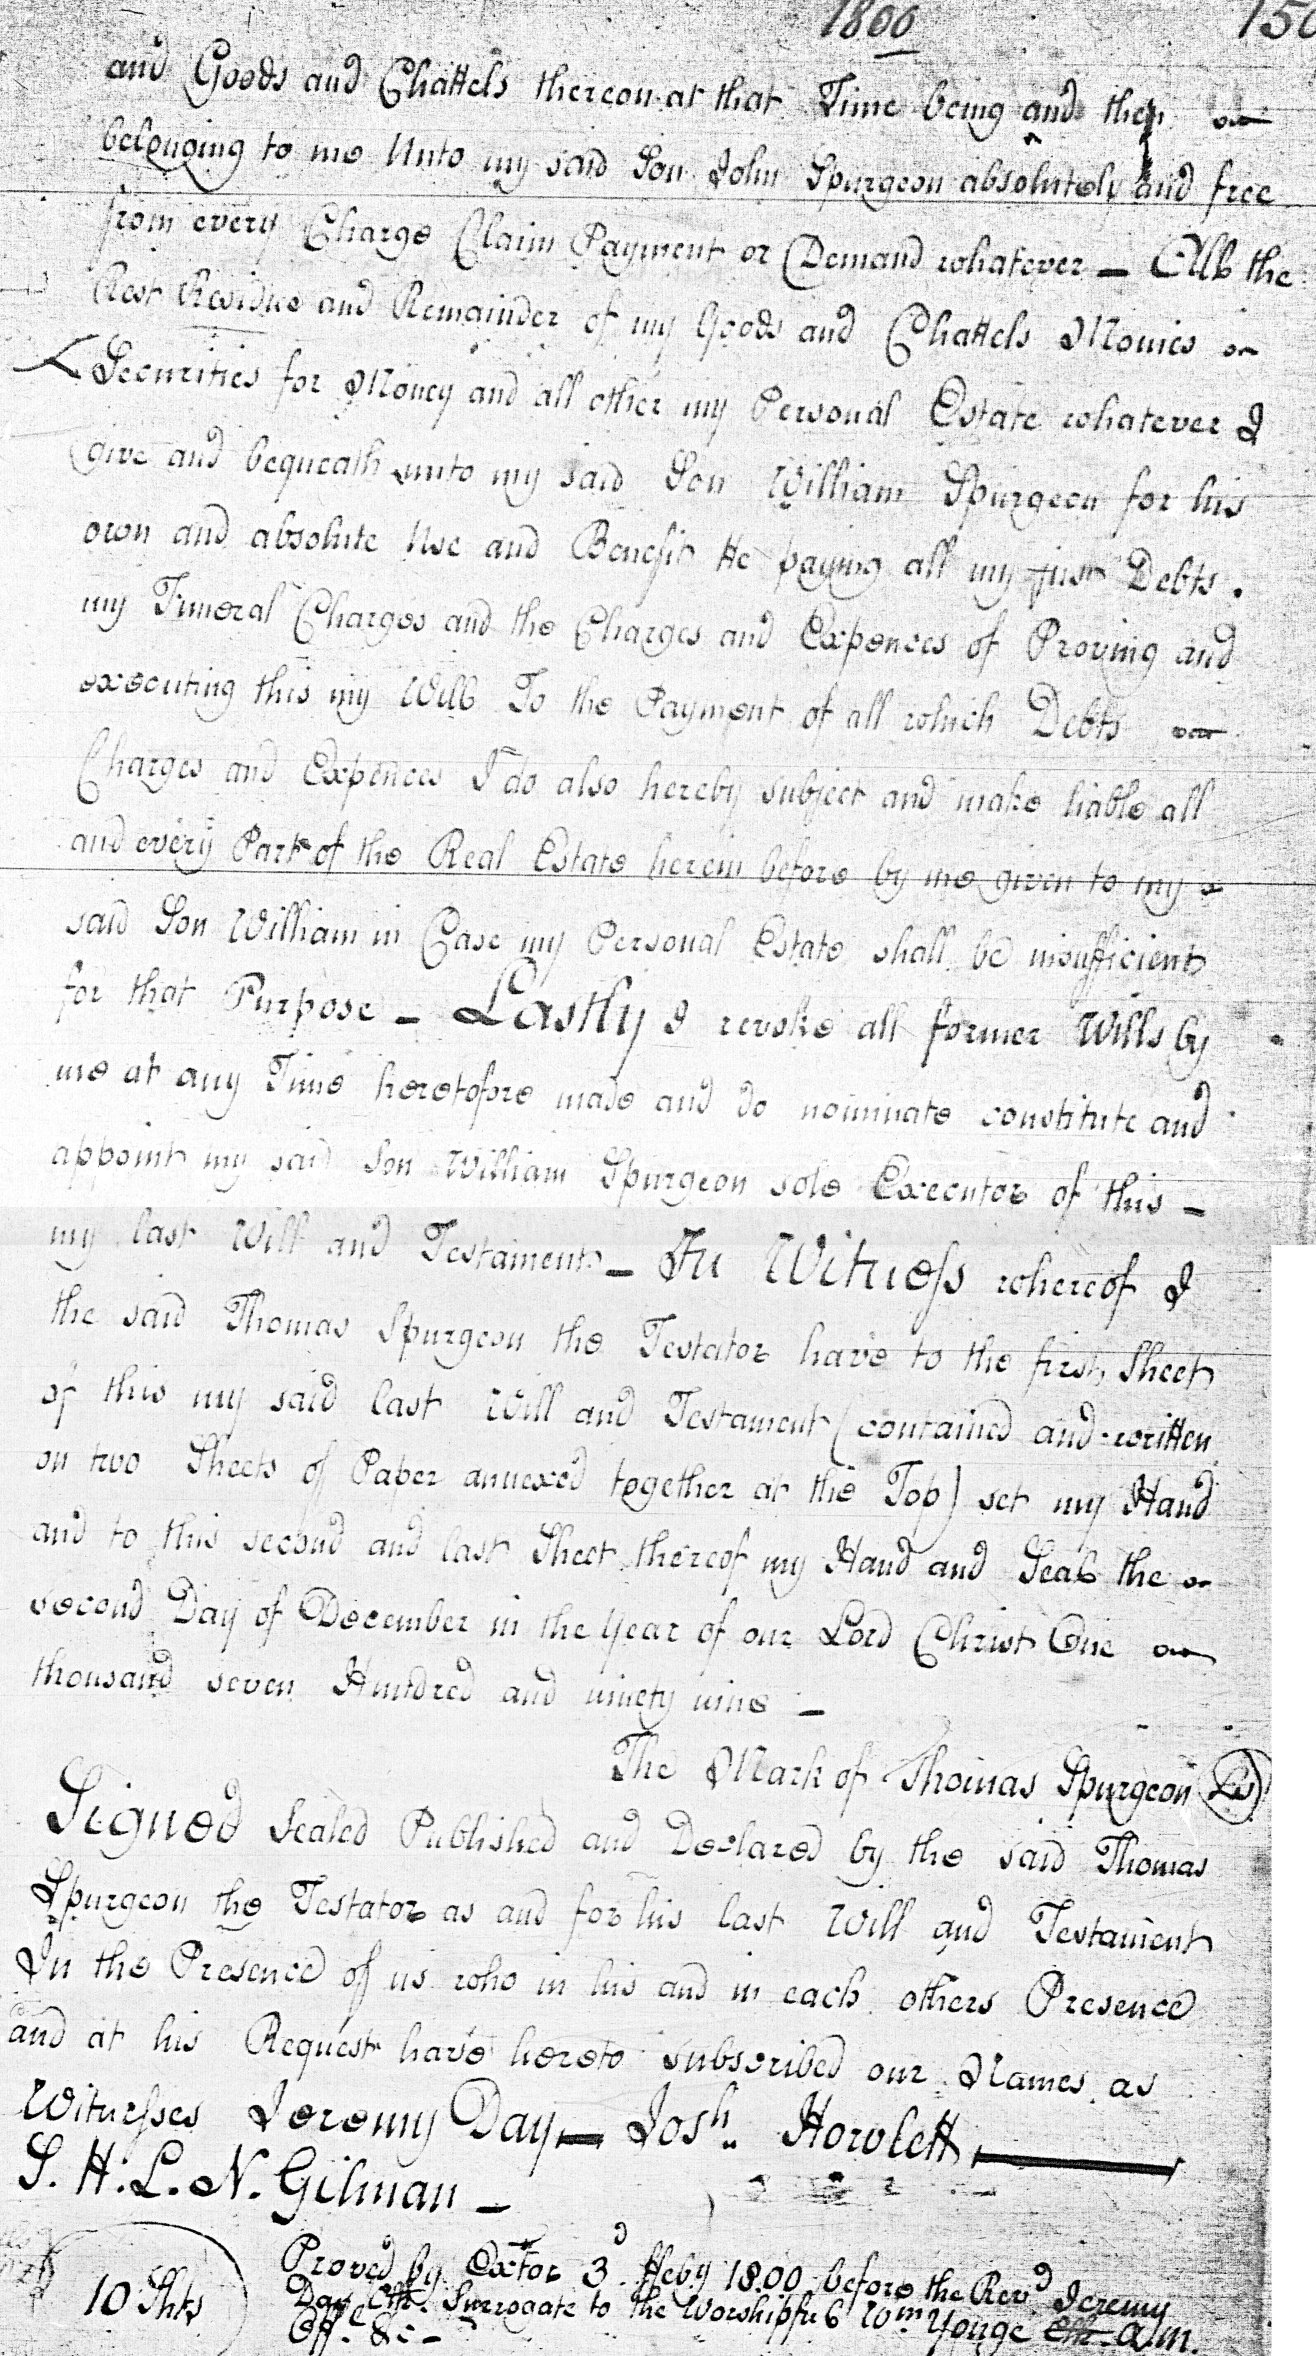 1800 150
and Goods and Chattels thereon at that Time being and then
belonging to me Unto my said Son John Spurgeon absolutely and free
from every Charge Claim Payment or Demand whatever — All the
Rest Residue and Remainder of my Goods and Chattels Monies
Securities for Money and all other my Personal Estate whatever I
give and bequeath unto my said Son William Spurgeon for his
own and absolute Use and Benefit He paying all my just Debts.
my Funeral Charges and the Charges and Expences of Proving and
executing this my Will To the Payment of all which Debts
Charges and Expences I do also hereby subject and make liable all
and every Part of the Real Estate herein before by me given to my
said Son William in Case my Personal Estate shall be insufficient
for that Purpose — Lastly I revoke all former Wills by
me at any Time heretofore made and do nominate constitute and
appoint my said Son William Spurgeon sole Executor of this —
my last Will and Testament — In Witness whereof I
the said Thomas Spurgeon the Testator have to the first Sheet
of this my said last Will and Testament (contained and written
on two Sheets of Paper annexed together at the Top) set my Hand
and to this second and last Sheet thereof my Hand and Seal the
second Day of December in the Year of our Lord Christ One
thousand seven Hundred and ninety nine —
The Mark of Thomas Spurgeon (LS)
Signed Sealed Published and Declared by the said Thomas
Spurgeon the Testator as and for his last Will and Testament
In the Presence of us who in his and in each others Presence
and at his Request have hereto subscribed our Names as
Witnesses Jeremy Day — Josh. Howlett —
S. H. L. N. Gilman —
10 Shts
Proved by ExTor 3d Feby 1800 before the Revd Jeremy
Day Clk. Surrogate to the Worshipful Wm Yonge A.M.
Offl &c —